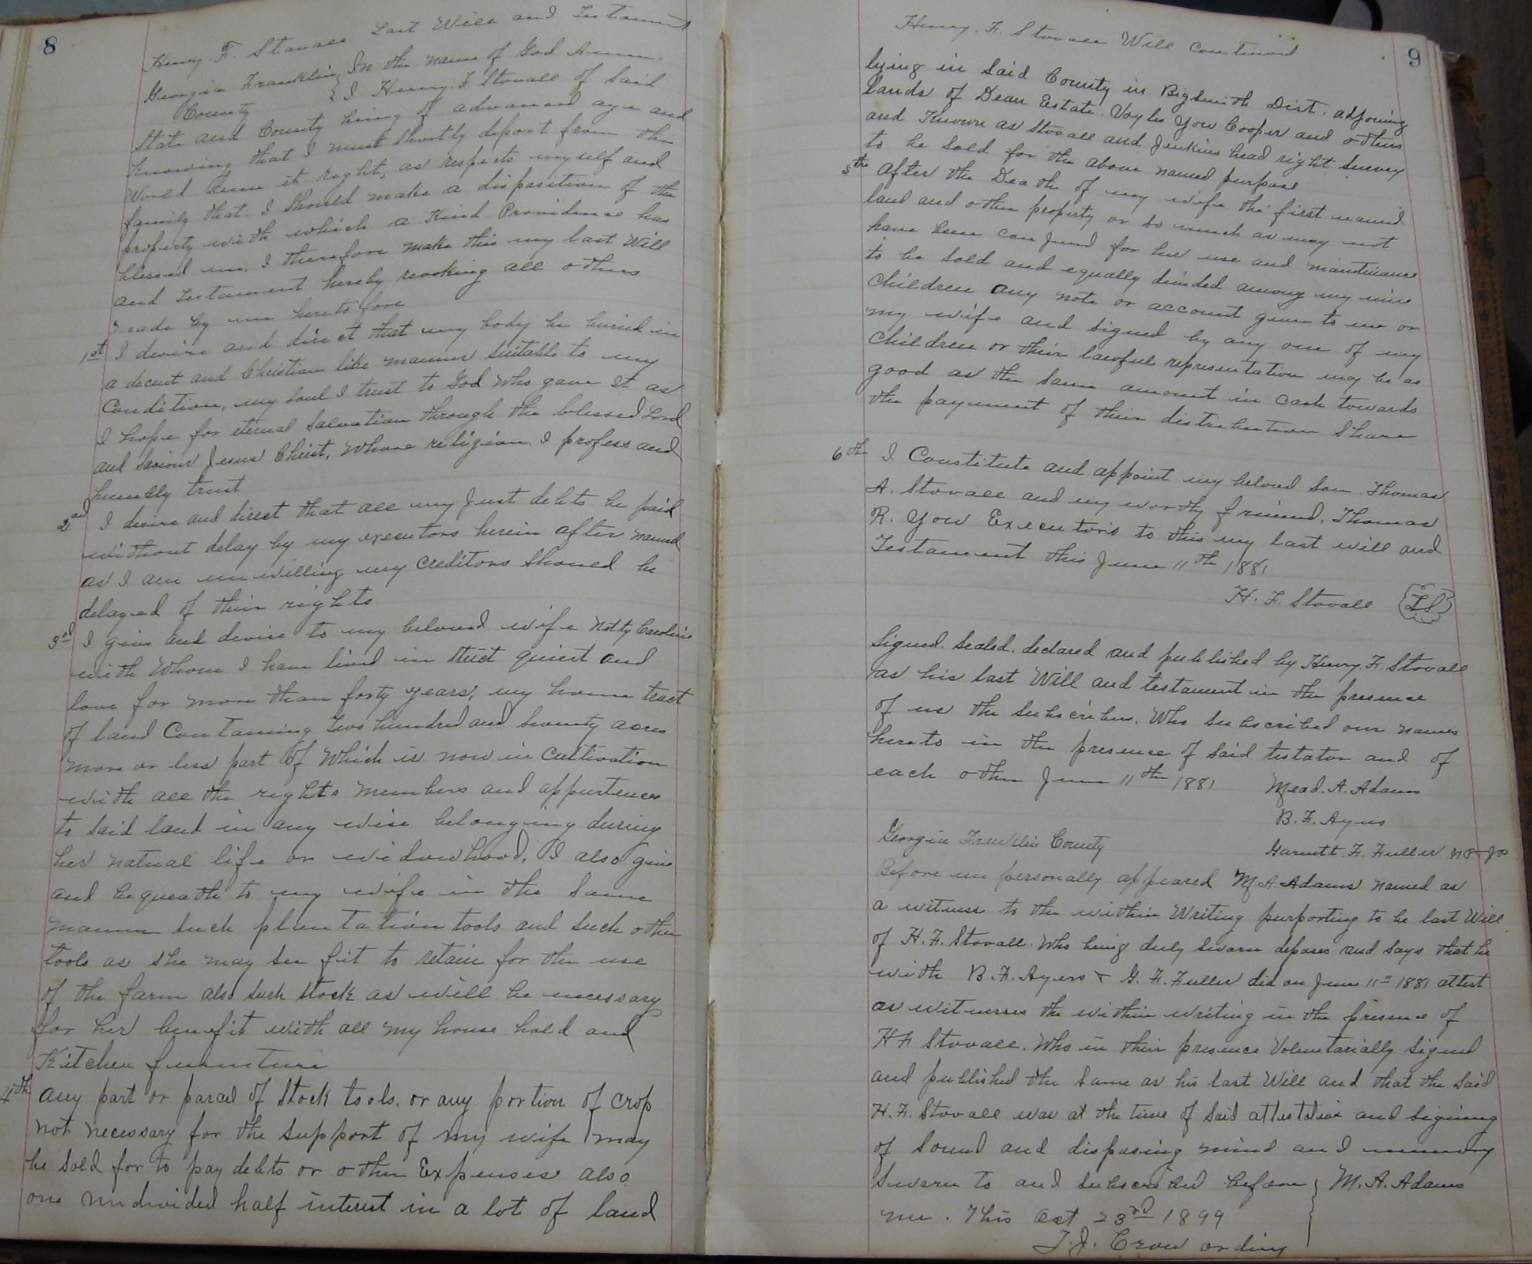 8
Henry. F. Stovall Last Will and Testament
Georgia Franklin } In the name of God Amen.
County } I Henry. F. Stovall of said
State and County being of advanced age and
knowing that I must shortly depart from this
World deem it right, as respects myself and
family that. I should make a disposition of the
property with which a Kind Providence has
blessed me. I therefore make this my last Will
and Testament hereby revoking all others
made by me heretofore
1st I desire and direct that my body be buried in
a decent and Christian like manner suitable to my
Condition, my soul I trust to God who gave it as
I hope for eternal Salvation through the blessed Lord
and Saviour Jesus Christ, Whose religion I profess and
humbly trust
2nd I desire and direct that all my Just debts be paid
without delay by my executors herein after named
as I am unwilling my Creditors Should be
delayed of their rights
3rd I give and devise to my beloved wife Netty Caroline
with Whom I have lived in strict quiet and
love for more than forty years, my home tract
of land Containing two hundred and seventy acres
more or less part of Which is now in Cultivation
with all the rights members and appurtences
to said land in any wise belonging during
her natural life or widowhood, I also give
and bequeath to my wife in the same
manner such plantation tools and such other
tools as she may see fit to retain for the use
of the farm also such stock as will be necessary
for her benefit with all my house hold and
Kitchen furniture
4th any part or parcel of Stock tools. or any portion of crop
not necessary for the support of my wife may
be sold for to pay debts or other Expenses also.
one undivided half interest in a lot of land
9
Henry. F. Stovall Will Continued
lying in said County in Bigsmith Dist. adjoining
lands of Dean Estate. Voyles Yow Cooper and others
and Known as Stovall and Jenkins head right survey
to be sold for the above named purpose
5th after the Death of my wife the first named
land and other property or so much as may not
have been conjumd for her use and maintinance
to be sold and equally divided among my nine
Children any note or account given to me or
my wife and signed by any one of my
Children or their lawful representation may be as
good as the same amount in Cash towards
the payment of their distributive share
6th I Constitute and appoint my beloved son. Thomas
A. Stovall and my worthy friend. Thomas
R. Yow Executors to this my last will and
Testament this June 11th 1881
H. F. Stovall LS
Signed. Sealed. declared and published by Henry F. Stovall
as his last Will and testament in the presence
of us the subscribers. Who subscribed our names
hereto in the presence of said testator and of
each other June 11th 1881 Mead. A. Adams
B. F. Ayers
Georgia Franklin County Garnett. F. Fuller N P & J P
Before me personally appeared M. A. Adams named as
a witness to the within Writing purporting to be last Will
of H. F. Stovall. Who being duly Sworn deposes and says that he
with B. F. Ayers & G. F. Fuller did on June 11th 1881 attest
as witnesses the within writing in the presence of
H F Stovall. Who in their presence Voluntarially Signed
and published the same as his last Will and that the said
H. F. Stovall was at the time of said attestation and signing
of sound and disposing mind and memory
Sworn to and subscribed before } M. A. Adams
me. This Oct 23rd 1899
T. J. Crow ordiny